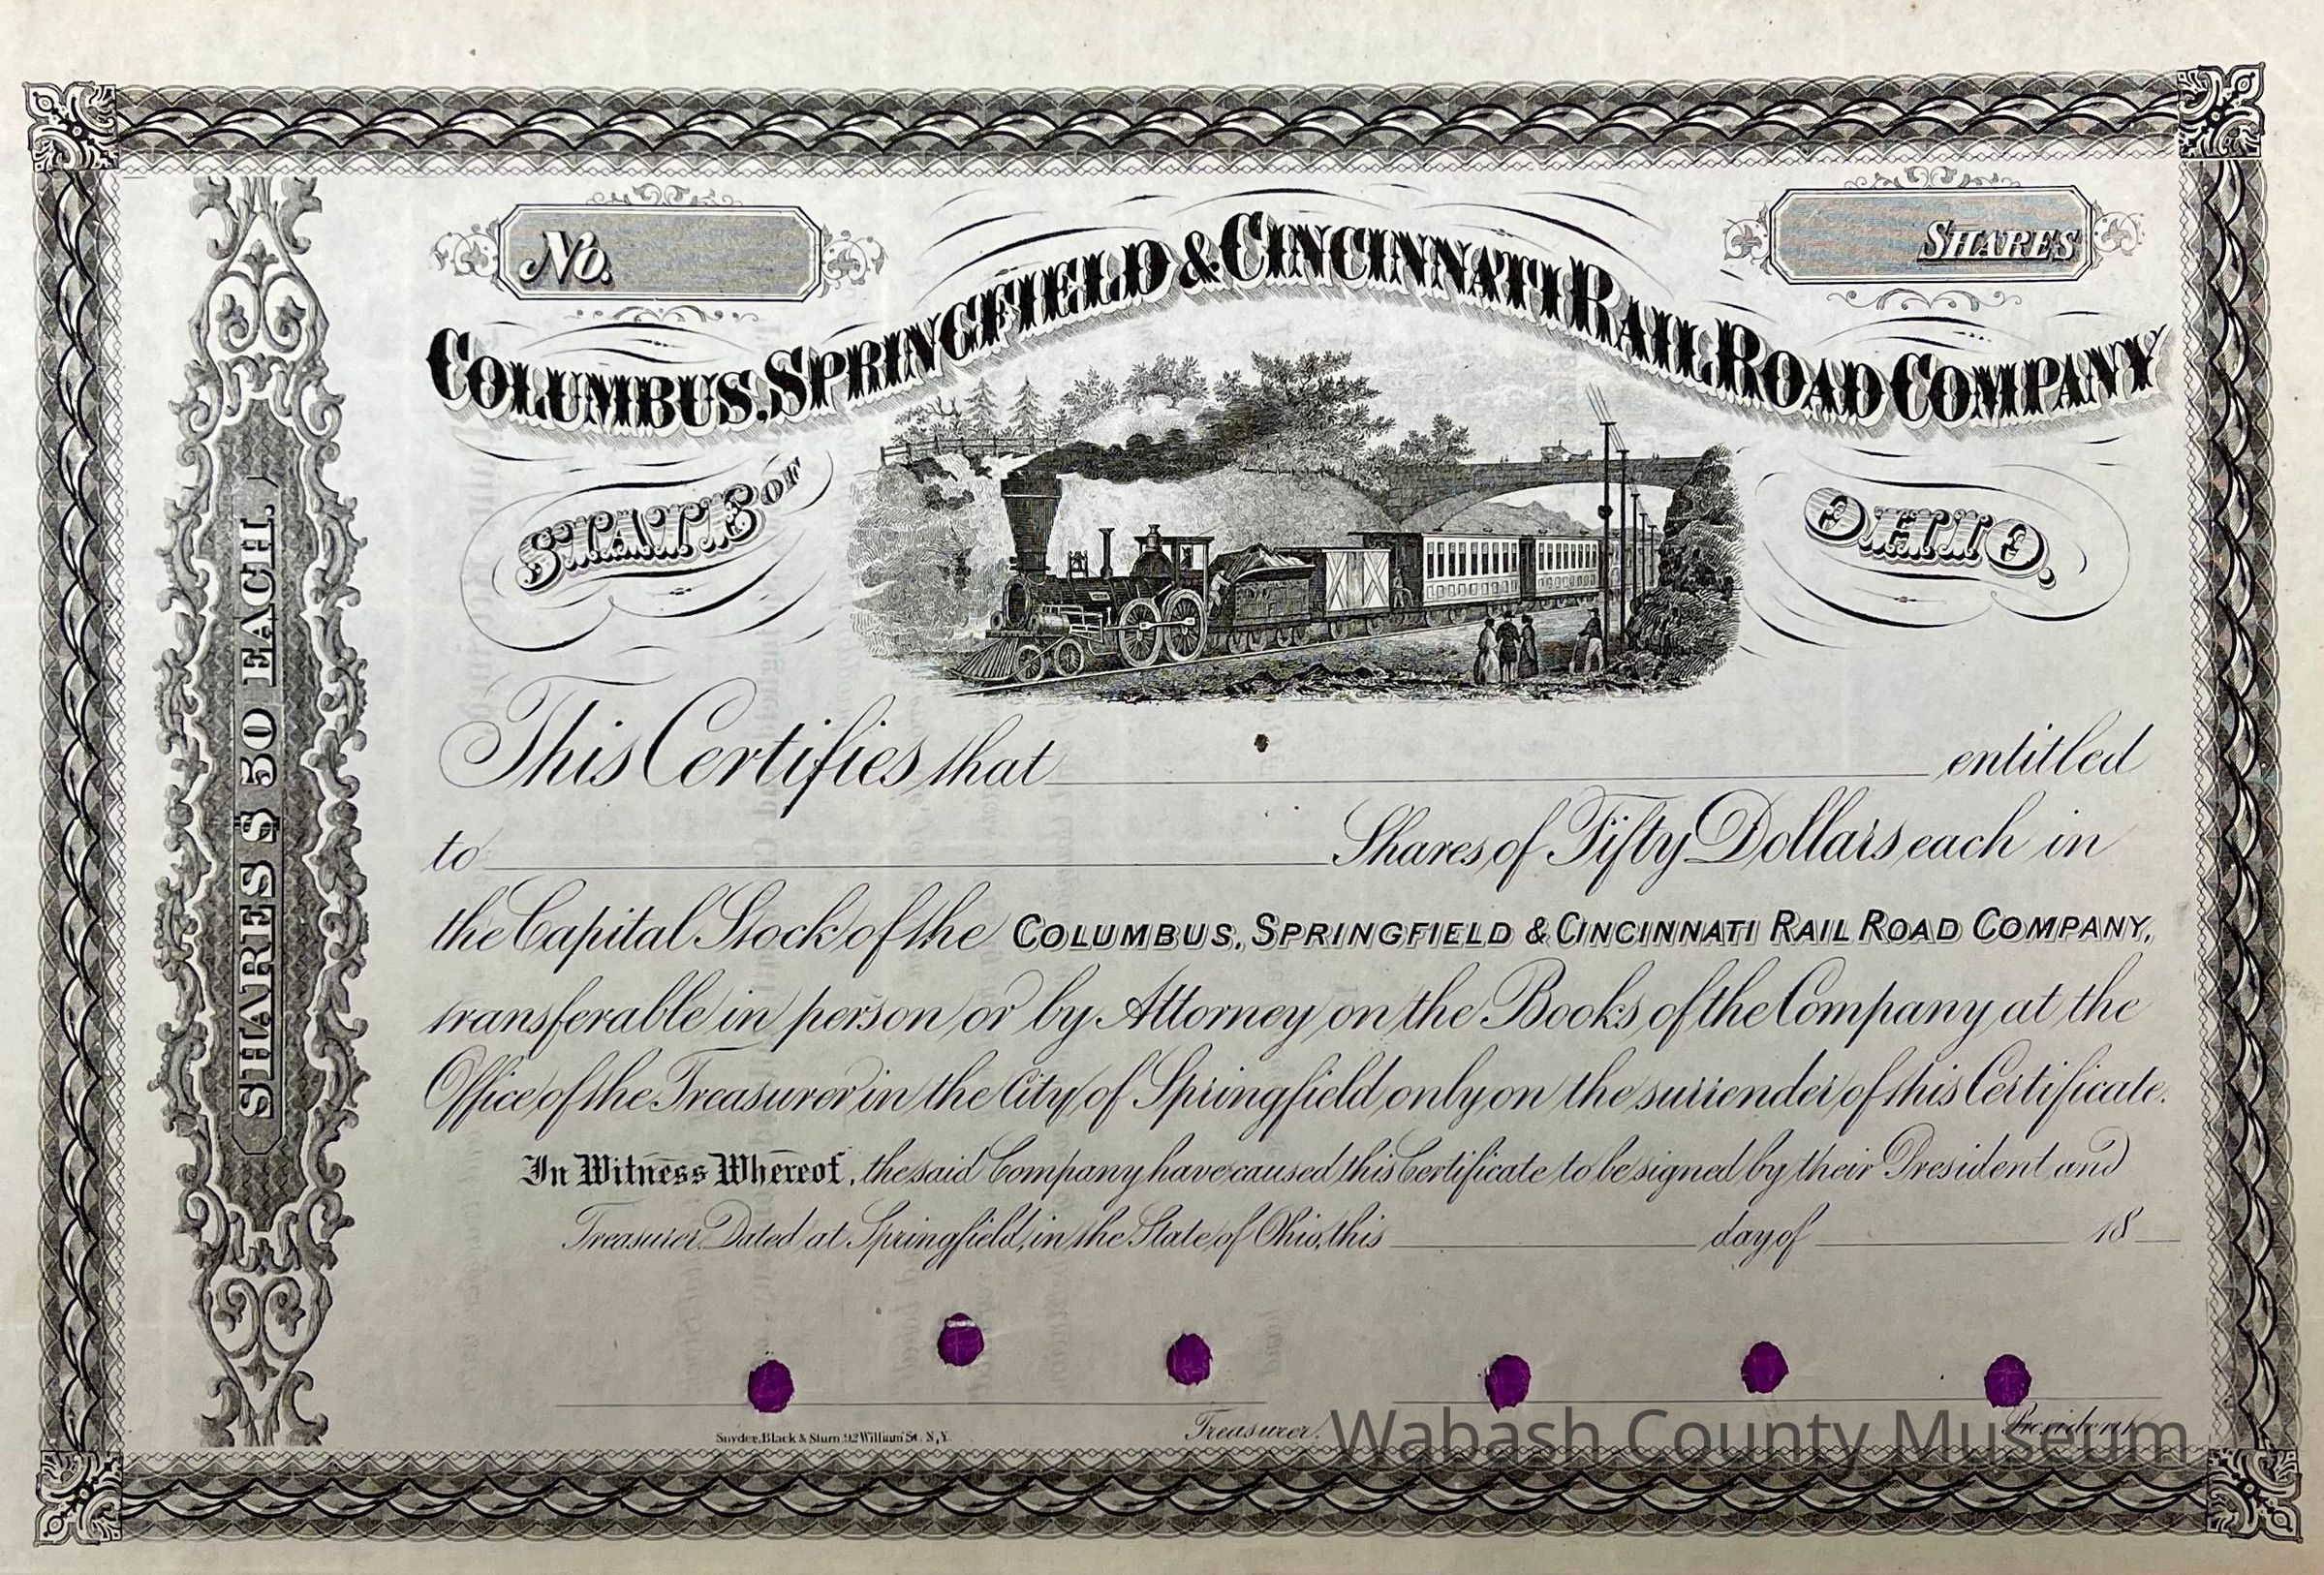 No.
SHARES
COLUMBUS, SPRINGFIELD & CINCINNATI RAIL ROAD COMPANY
STATE OF OHIO.
SHARES $50 EACH.
This Certifies that entitled
to Shares of Fifty Dollars each in
the Capital Stock of the COLUMBUS, SPRINGFIELD & CINCINNATI RAIL ROAD COMPANY,
transferable in person or by Attorney on the Books of the Company at the
Office of the Treasurer in the City of Springfield only on the surrender of this Certificate.
In Witness Whereof, the said Company have caused this Certificate to be signed by their President and
Treasurer. Dated at Springfield, in the State of Ohio, this day of 18
Snyder, Black & Sturn, 92 William St. N,Y.
Treasurer.
President
Wabash County Museum